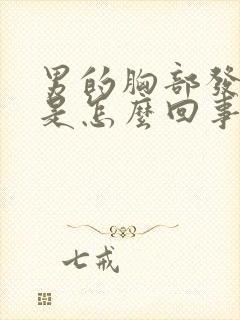 男的胸部發
是怎麼回事
七戒